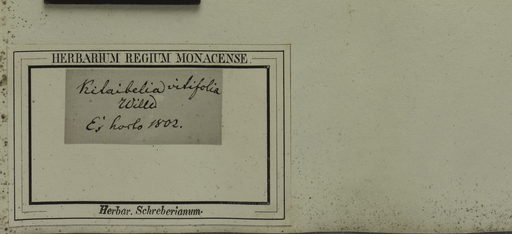 HERBARIUM REGIUM MONACENSE.
Kitaibelia vitifolia
Willd
Ex horto 1802.
Herbar. Schreberianum.